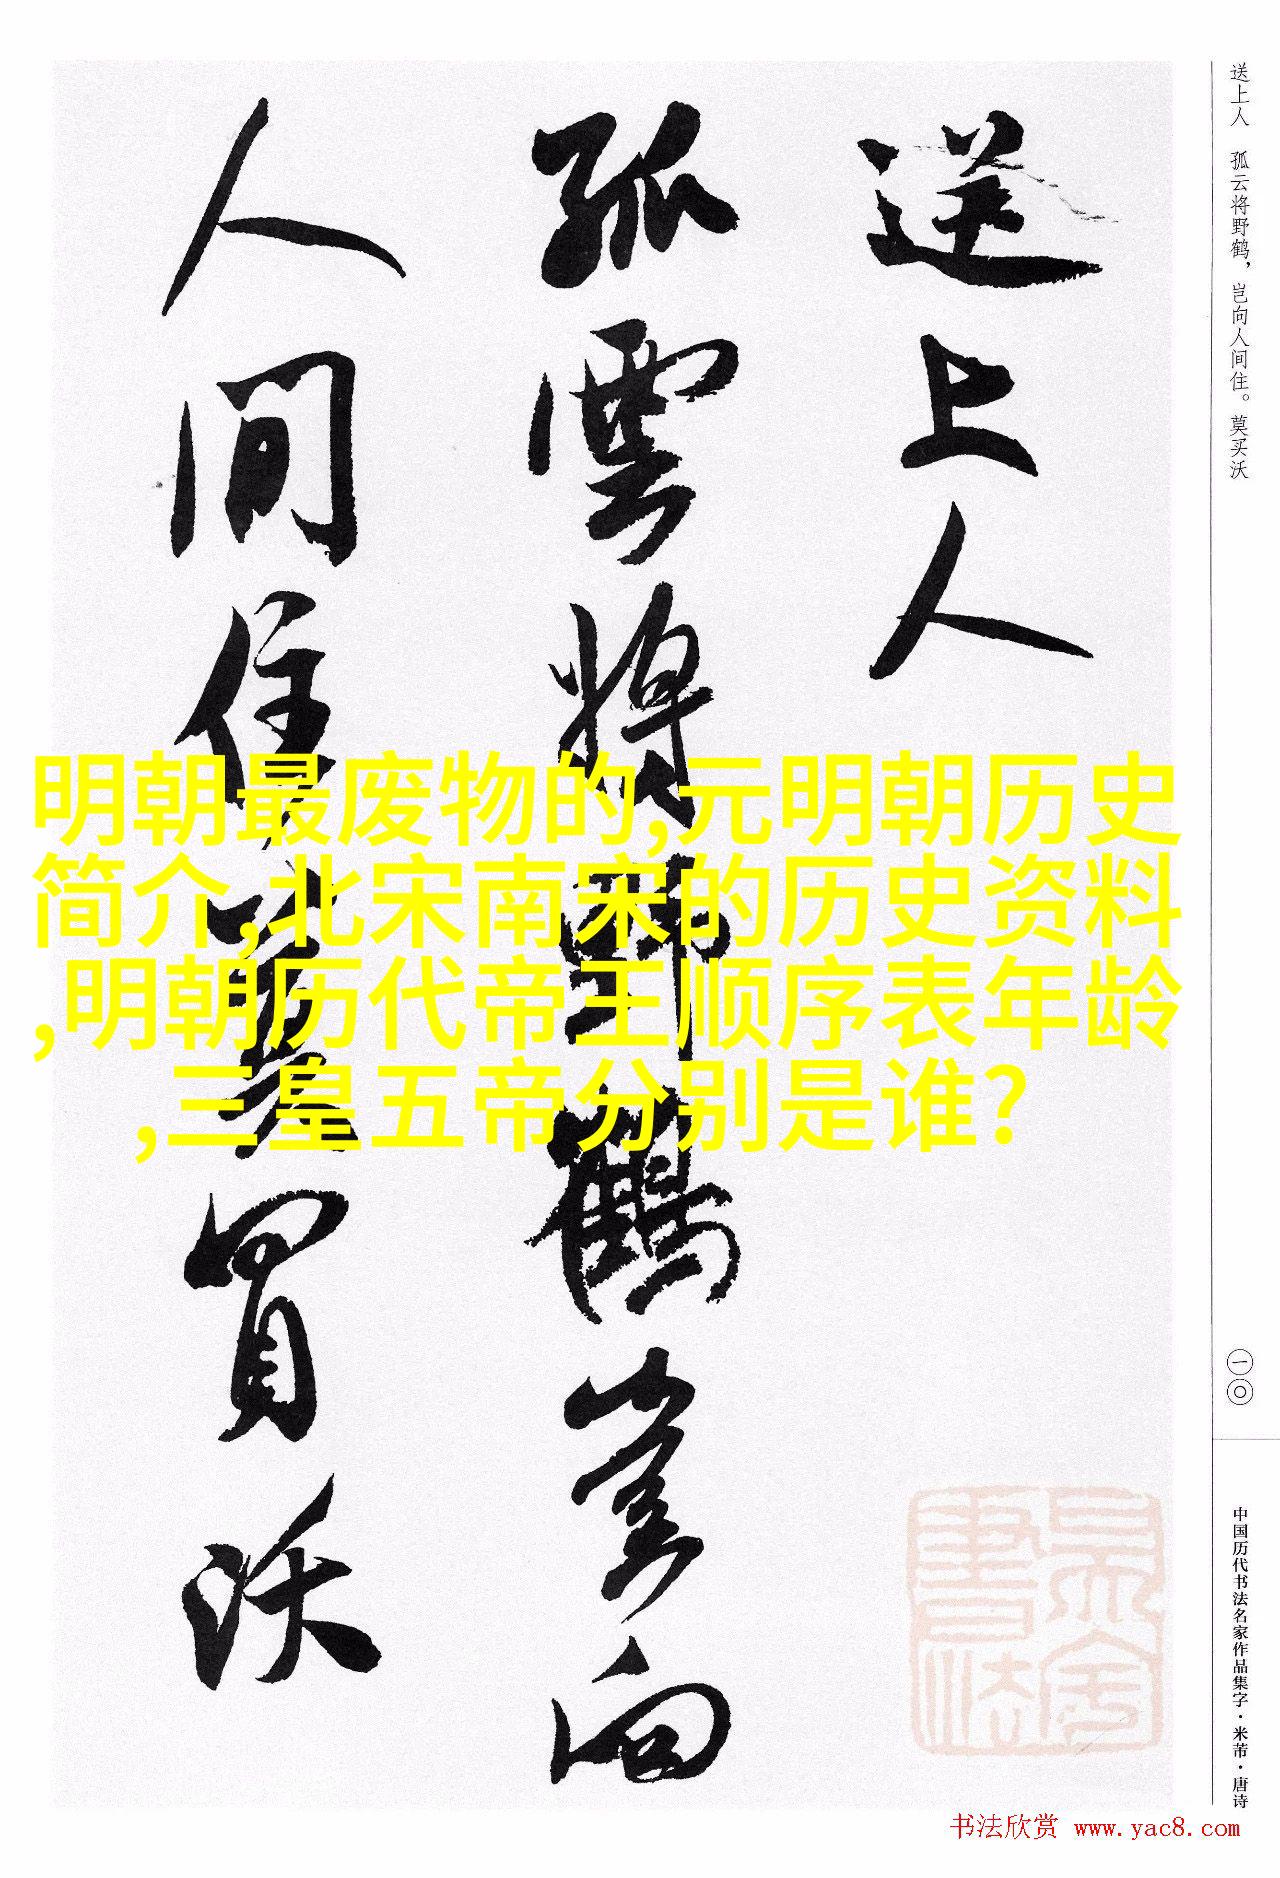 送上人
孤雲將野鶴豈向
人間住莫買沃
明朝最废物的,元明朝历史
简介,北宋南宋的历史资料
,明朝历代帝王顺序表年龄
,三皇五帝分别是谁?
送上人　孤云将野鹤，岂向人间住。莫买沃
一〇
中国历代书法名家作品集字·米芾·唐诗
书法欣赏 www.yac8.com